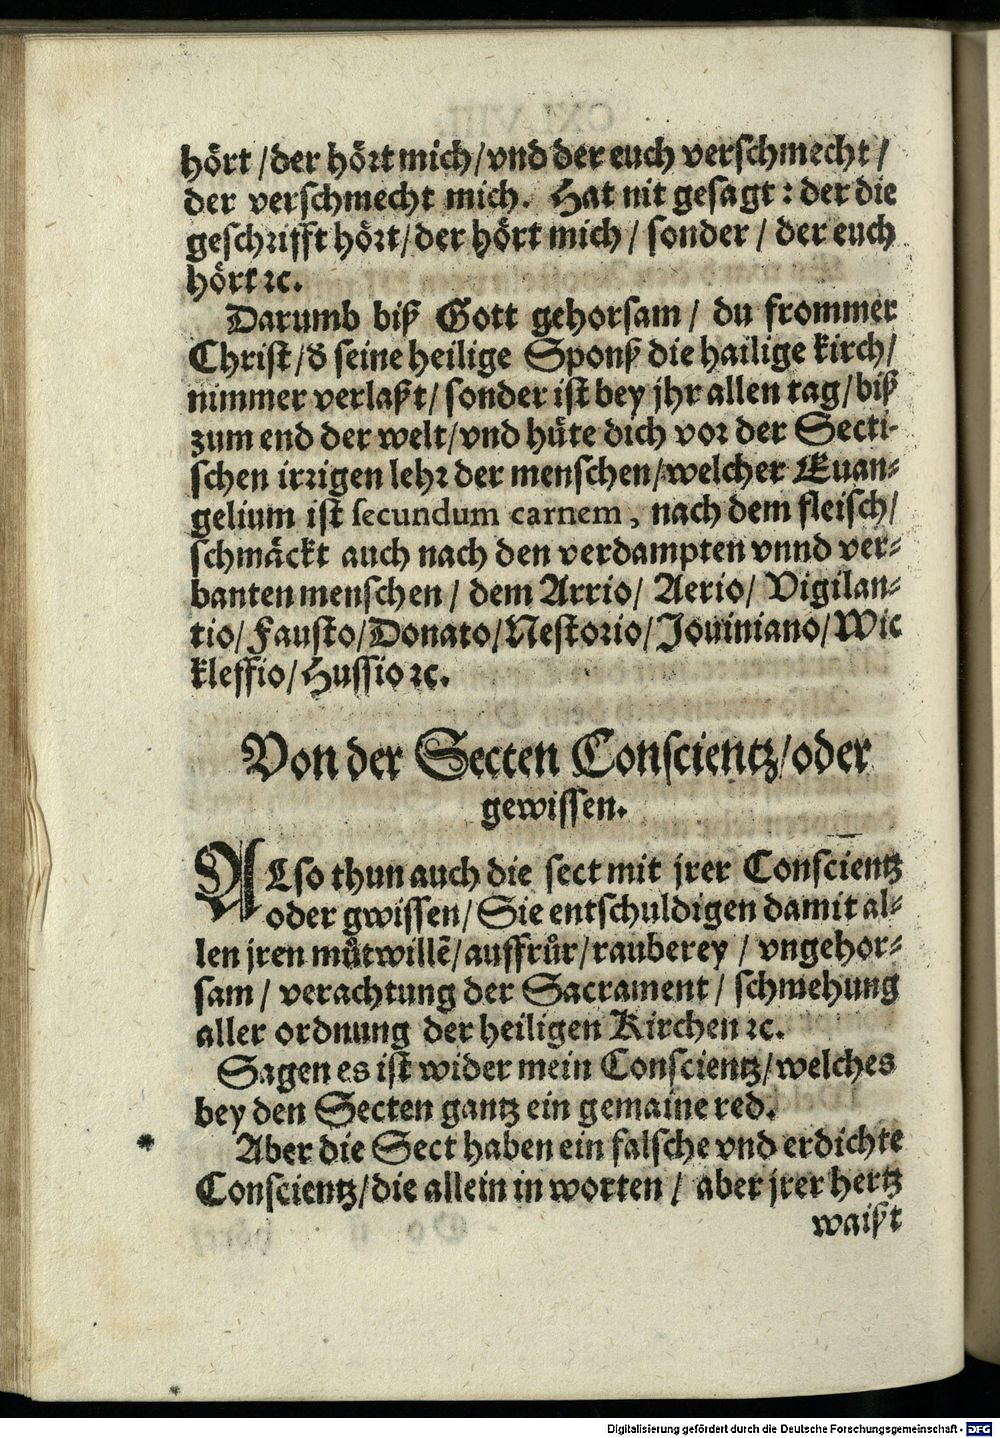 hört / der hört mich / vnd der euch verschmecht /
der verschmecht mich. Hat nit gesagt : der die
geschrifft hört / der hört mich / sonder / der euch
hört ꝛc.
Darumb biß Gott gehorsam / du frommer
Christ / d̕ seine heilige Sponß die hailige kirch /
nimmer verlaßt / sonder ist bey jhr allen tag / biß
zum end der welt / vnd hüte dich vor der Secti-
schen irrigen lehr der menschen / welcher Euan-
gelium ist secundum carnem, nach dem fleisch /
schmäckt auch nach den verdampten vnnd ver-
banten menschen / dem Arrio / Aerio / Vigilan-
tio / Fausto / Donato / Nestorio / Jouiniano / Wic
kleffio / Hussio ꝛc.
Von der Secten Conscientz / oder
gewissen.
ALso thun auch die sect mit jrer Conscientz
oder gwissen / Sie entschuldigen damit al-
len jren můtwillē / auffrůr / rauberey / vngehor-
sam / verachtung der Sacrament / schmehung
aller ordnung der heiligen Kirchen ꝛc.
Sagen es ist wider mein Conscientz / welches
bey den Secten gantz ein gemaine red.
* Aber die Sect haben ein falsche vnd erdichte
Conscientz / die allein in worten / aber jrer hertz
waißt
Digitalisierung gefördert durch die Deutsche Forschungsgemeinschaft - DFG